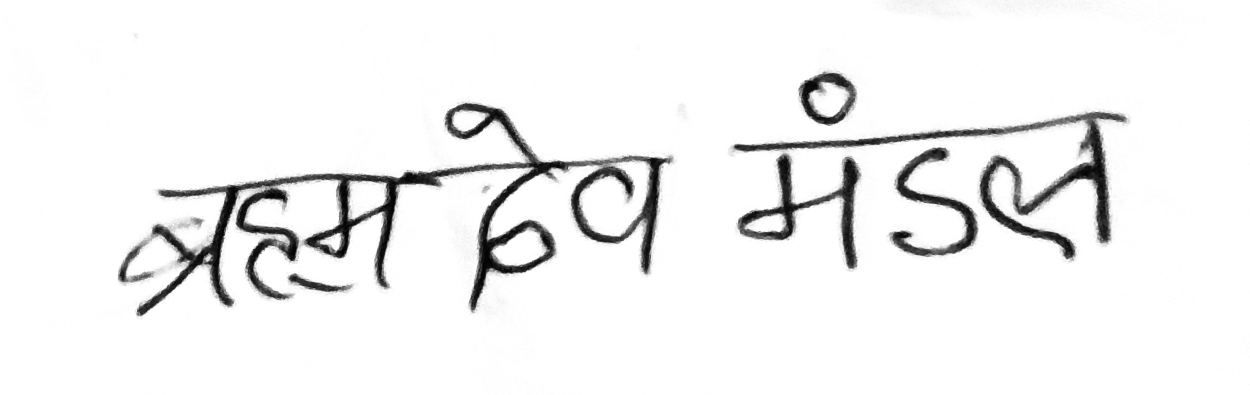 ब्रह्म देव मंडल